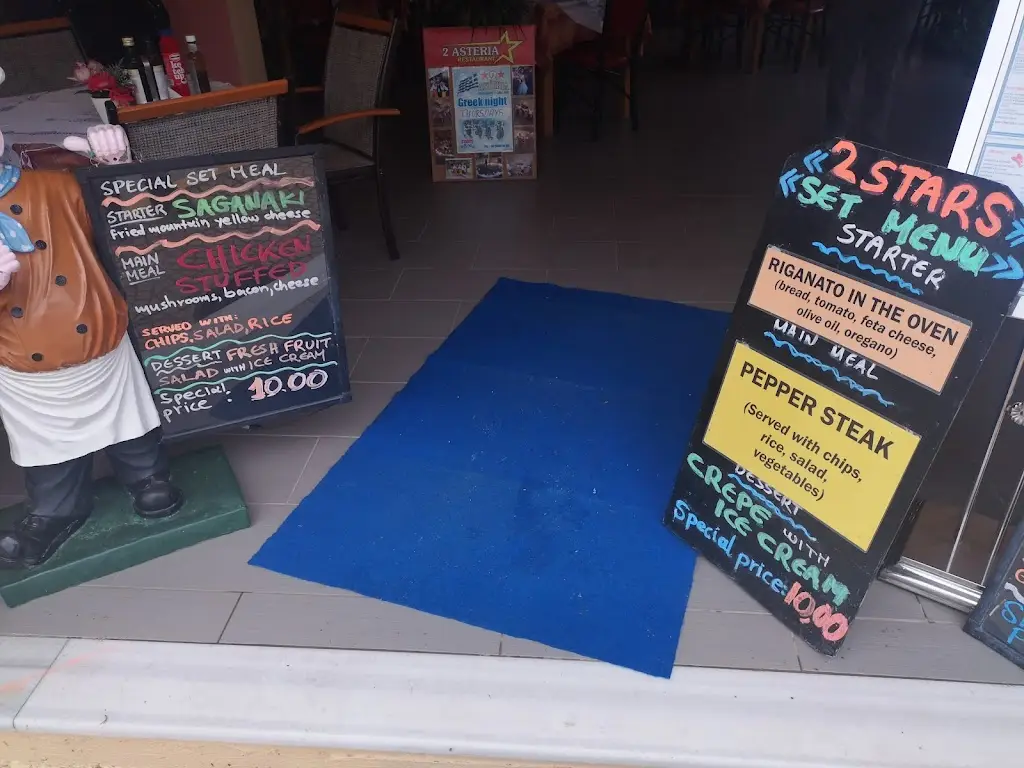 SPECIAL SET MEAL
STARTER SAGANAKI
Fried mountain yellow cheese
MAIN MEAL CHICKEN STUFFED
mushrooms, bacon, cheese
SERVED WITH:
CHIPS, SALAD, RICE
DESSERT FRESH FRUIT
SALAD WITH ICE CREAM
Special price: 10.00
2 ASTERIA
RESTAURANT
Greek night
THURSDAYS
2STARS
SET MENU
STARTER
RIGANATO IN THE OVEN
(bread, tomato, feta cheese,
olive oil, oregano)
MAIN MEAL
PEPPER STEAK
(Served with chips,
rice, salad,
vegetables)
DESSERT
CREPE WITH
ICE CREAM
Special price: 10,00